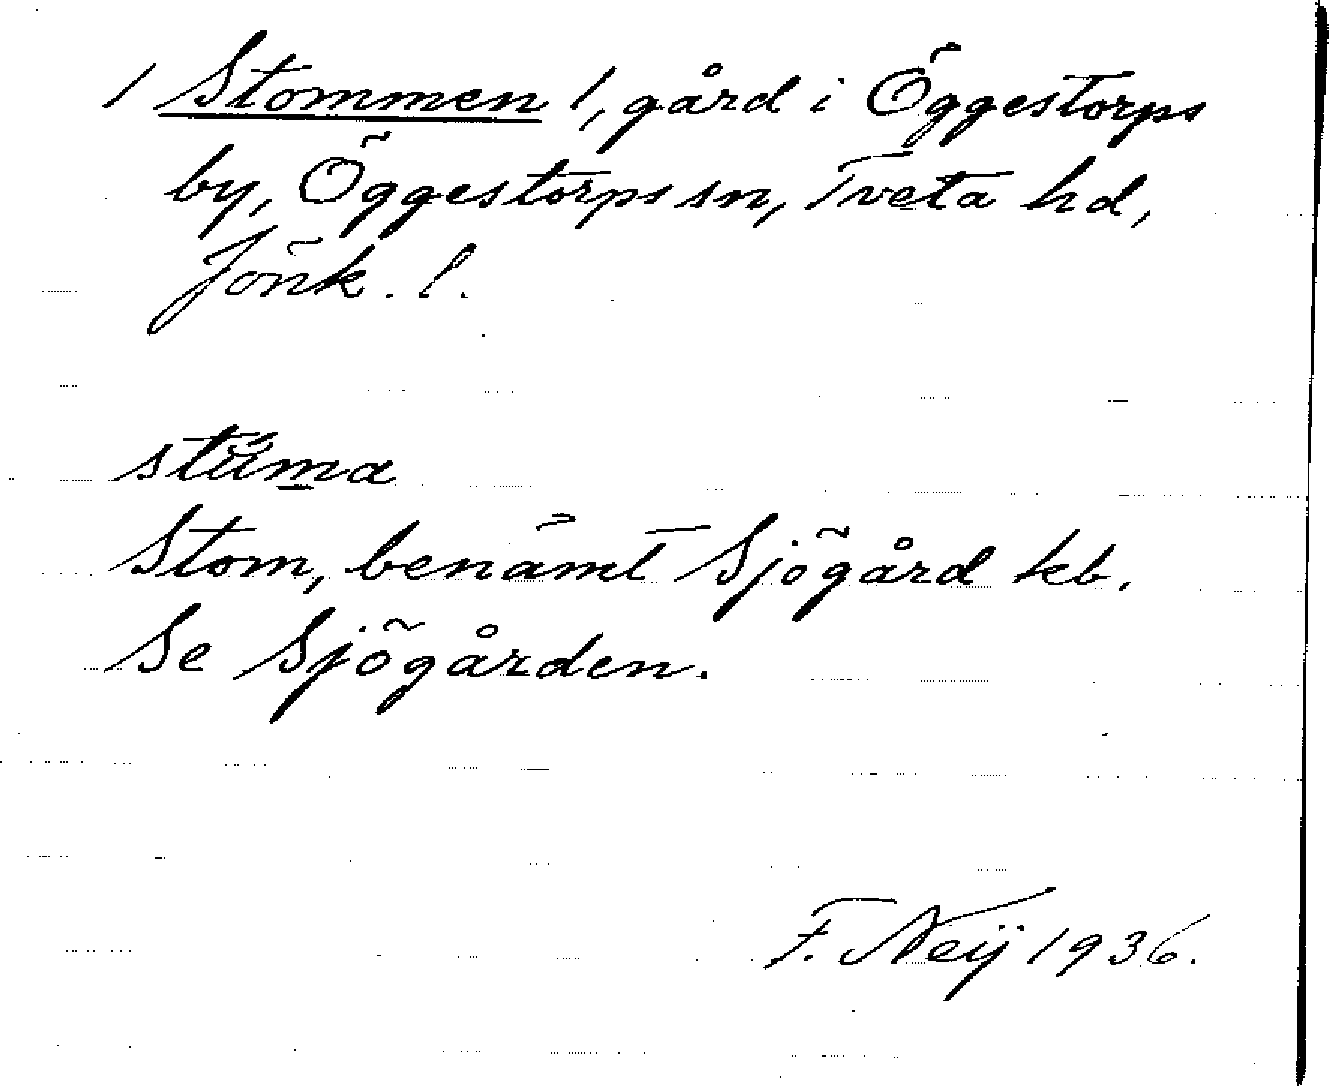 / Stommen /, gård i Öggestorps
by, Öggestorps sn, Tveta hd,
Jönk. l.
stu̇̀m̱a
Stom, benämt Sjögård kb.
Se Sjögården.
F. Neij 1936.